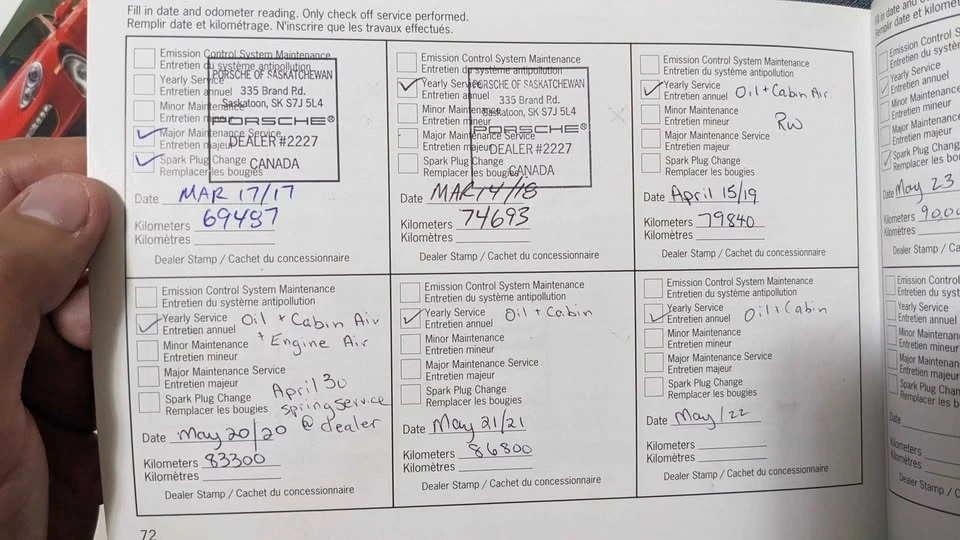 Fill in date and odometer reading. Only check off service performed.
Remplir date et kilométrage. N'inscrire que les travaux effectués.
Emission Control System Maintenance
Entretien du système antipollution
Yearly Service
Entretien annuel
Minor Maintenance
Entretien mineur
Major Maintenance Service
Entretien majeur
Spark Plug Change
Remplacer les bougies
PORSCHE OF SASKATCHEWAN
335 Brand Rd.
Saskatoon, SK S7J 5L4
PORSCHE®
DEALER #2227
CANADA
Date MAR 17/17
Kilometers 69487
Kilomètres
Dealer Stamp / Cachet du concessionnaire
Emission Control System Maintenance
Entretien du système antipollution
Yearly Service
Entretien annuel
Minor Maintenance
Entretien mineur
Major Maintenance Service
Entretien majeur
Spark Plug Change
Remplacer les bougies
PORSCHE OF SASKATCHEWAN
335 Brand Rd.
Saskatoon, SK S7J 5L4
PORSCHE®
DEALER #2227
CANADA
Date MAR 14/18
Kilometers 74693
Kilomètres
Dealer Stamp / Cachet du concessionnaire
Emission Control System Maintenance
Entretien du système antipollution
Yearly Service Oil + Cabin Air
Entretien annuel
Minor Maintenance
Entretien mineur RW
Major Maintenance Service
Entretien majeur
Spark Plug Change
Remplacer les bougies
Date April 15/19
Kilometers 79840
Kilomètres
Dealer Stamp / Cachet du concessionnaire
Emission Control System Maintenance
Entretien du système antipollution
Yearly Service Oil + Cabin Air
Entretien annuel
Minor Maintenance + Engine Air
Entretien mineur
Major Maintenance Service
Entretien majeur
Spark Plug Change April 30
Remplacer les bougies spring service
@ dealer
Date May 20/20
Kilometers 83300
Kilomètres
Dealer Stamp / Cachet du concessionnaire
Emission Control System Maintenance
Entretien du système antipollution
Yearly Service Oil + Cabin
Entretien annuel
Minor Maintenance
Entretien mineur
Major Maintenance Service
Entretien majeur
Spark Plug Change
Remplacer les bougies
Date May 21/21
Kilometers 86800
Kilomètres
Dealer Stamp / Cachet du concessionnaire
Emission Control System Maintenance
Entretien du système antipollution
Yearly Service Oil + Cabin
Entretien annuel
Minor Maintenance
Entretien mineur
Major Maintenance Service
Entretien majeur
Spark Plug Change
Remplacer les bougies
Date May/22
Kilometers
Kilomètres
Dealer Stamp / Cachet du concessionnaire
72
Emission Control
Entretien du
Yearly Service
Entretien annuel
Minor Maintenance
Entretien mineur
Major
Entretien majeur
Spark Plug Change
Remplacer les
Date May 23
Kilometers
Kilomètres
Dealer Stamp
Emission Control
Entretien du
Yearly Service
Entretien annuel
Minor
Entretien mineur
Major
Entretien majeur
Spark Plug
Remplacer les
Date
Kilometers
Kilomètres
Dealer Stamp